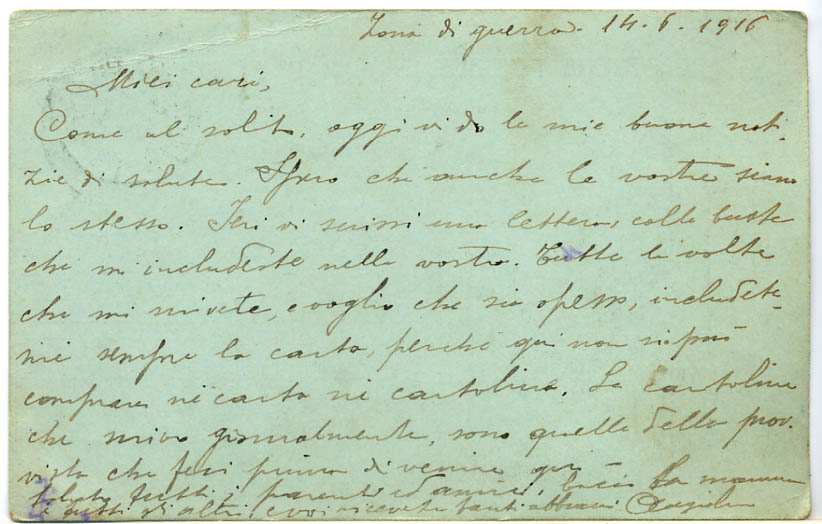 Zona di guerra. 14.6.1916
Miei cari,
Come al solito, oggi vi do le mie buone noti-
zie di salute. Spero che anche le vostre siano
lo stesso. Ieri vi scrissi una lettera, colla busta
che mi includeste nella vostra. Tutte le volte
che mi scrivete, e voglio che sia spesso, includete-
mi sempre la carta, perché qui non si può
comprare nè carta nè cartoline. Le cartoline
che scrivo giornalmente, sono quelle della prov-
vista che feci prima di venire qui
Salutate tutti i parenti ed amici, bacio la mamma
e tutti gli altri, e voi ricevete tanti abbracci